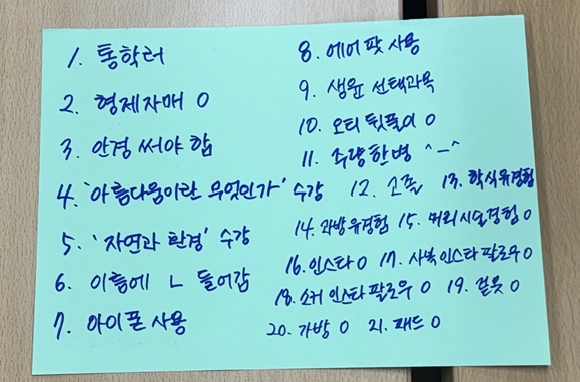 1. 통학러
2. 형제자매 O
3. 안경 써야 함
4. '아름다움이란 무엇인가' 수강
5. '자연과 환경' 수강
6. 이름에 ㄴ 들어감
7. 아이폰 사용
8. 에어팟 사용
9. 생윤 선택과목
10. 오티 뒷풀이 O
11. 주량 한병 ^-^
12. 고졸 13. 학식유경험
14. 과방유경험 15. 머리시술경험 O
16. 인스타 O 17. 사복 인스타 팔로우 O
18. 소커 인스타 팔로우 O 19. 겉옷 O
20. 가방 O 21. 패드 O